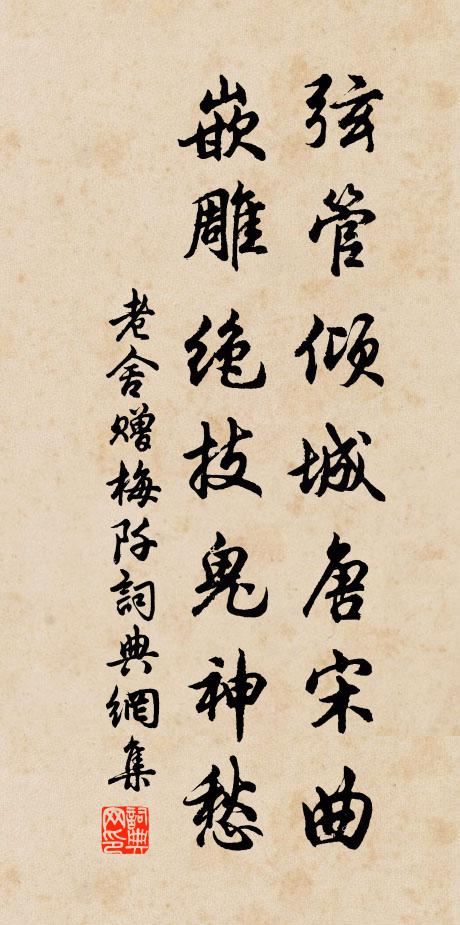 弦管倾城唐宋曲
嵌雕绝技鬼神愁
老舍赠梅阡詞典網集
詞典網印